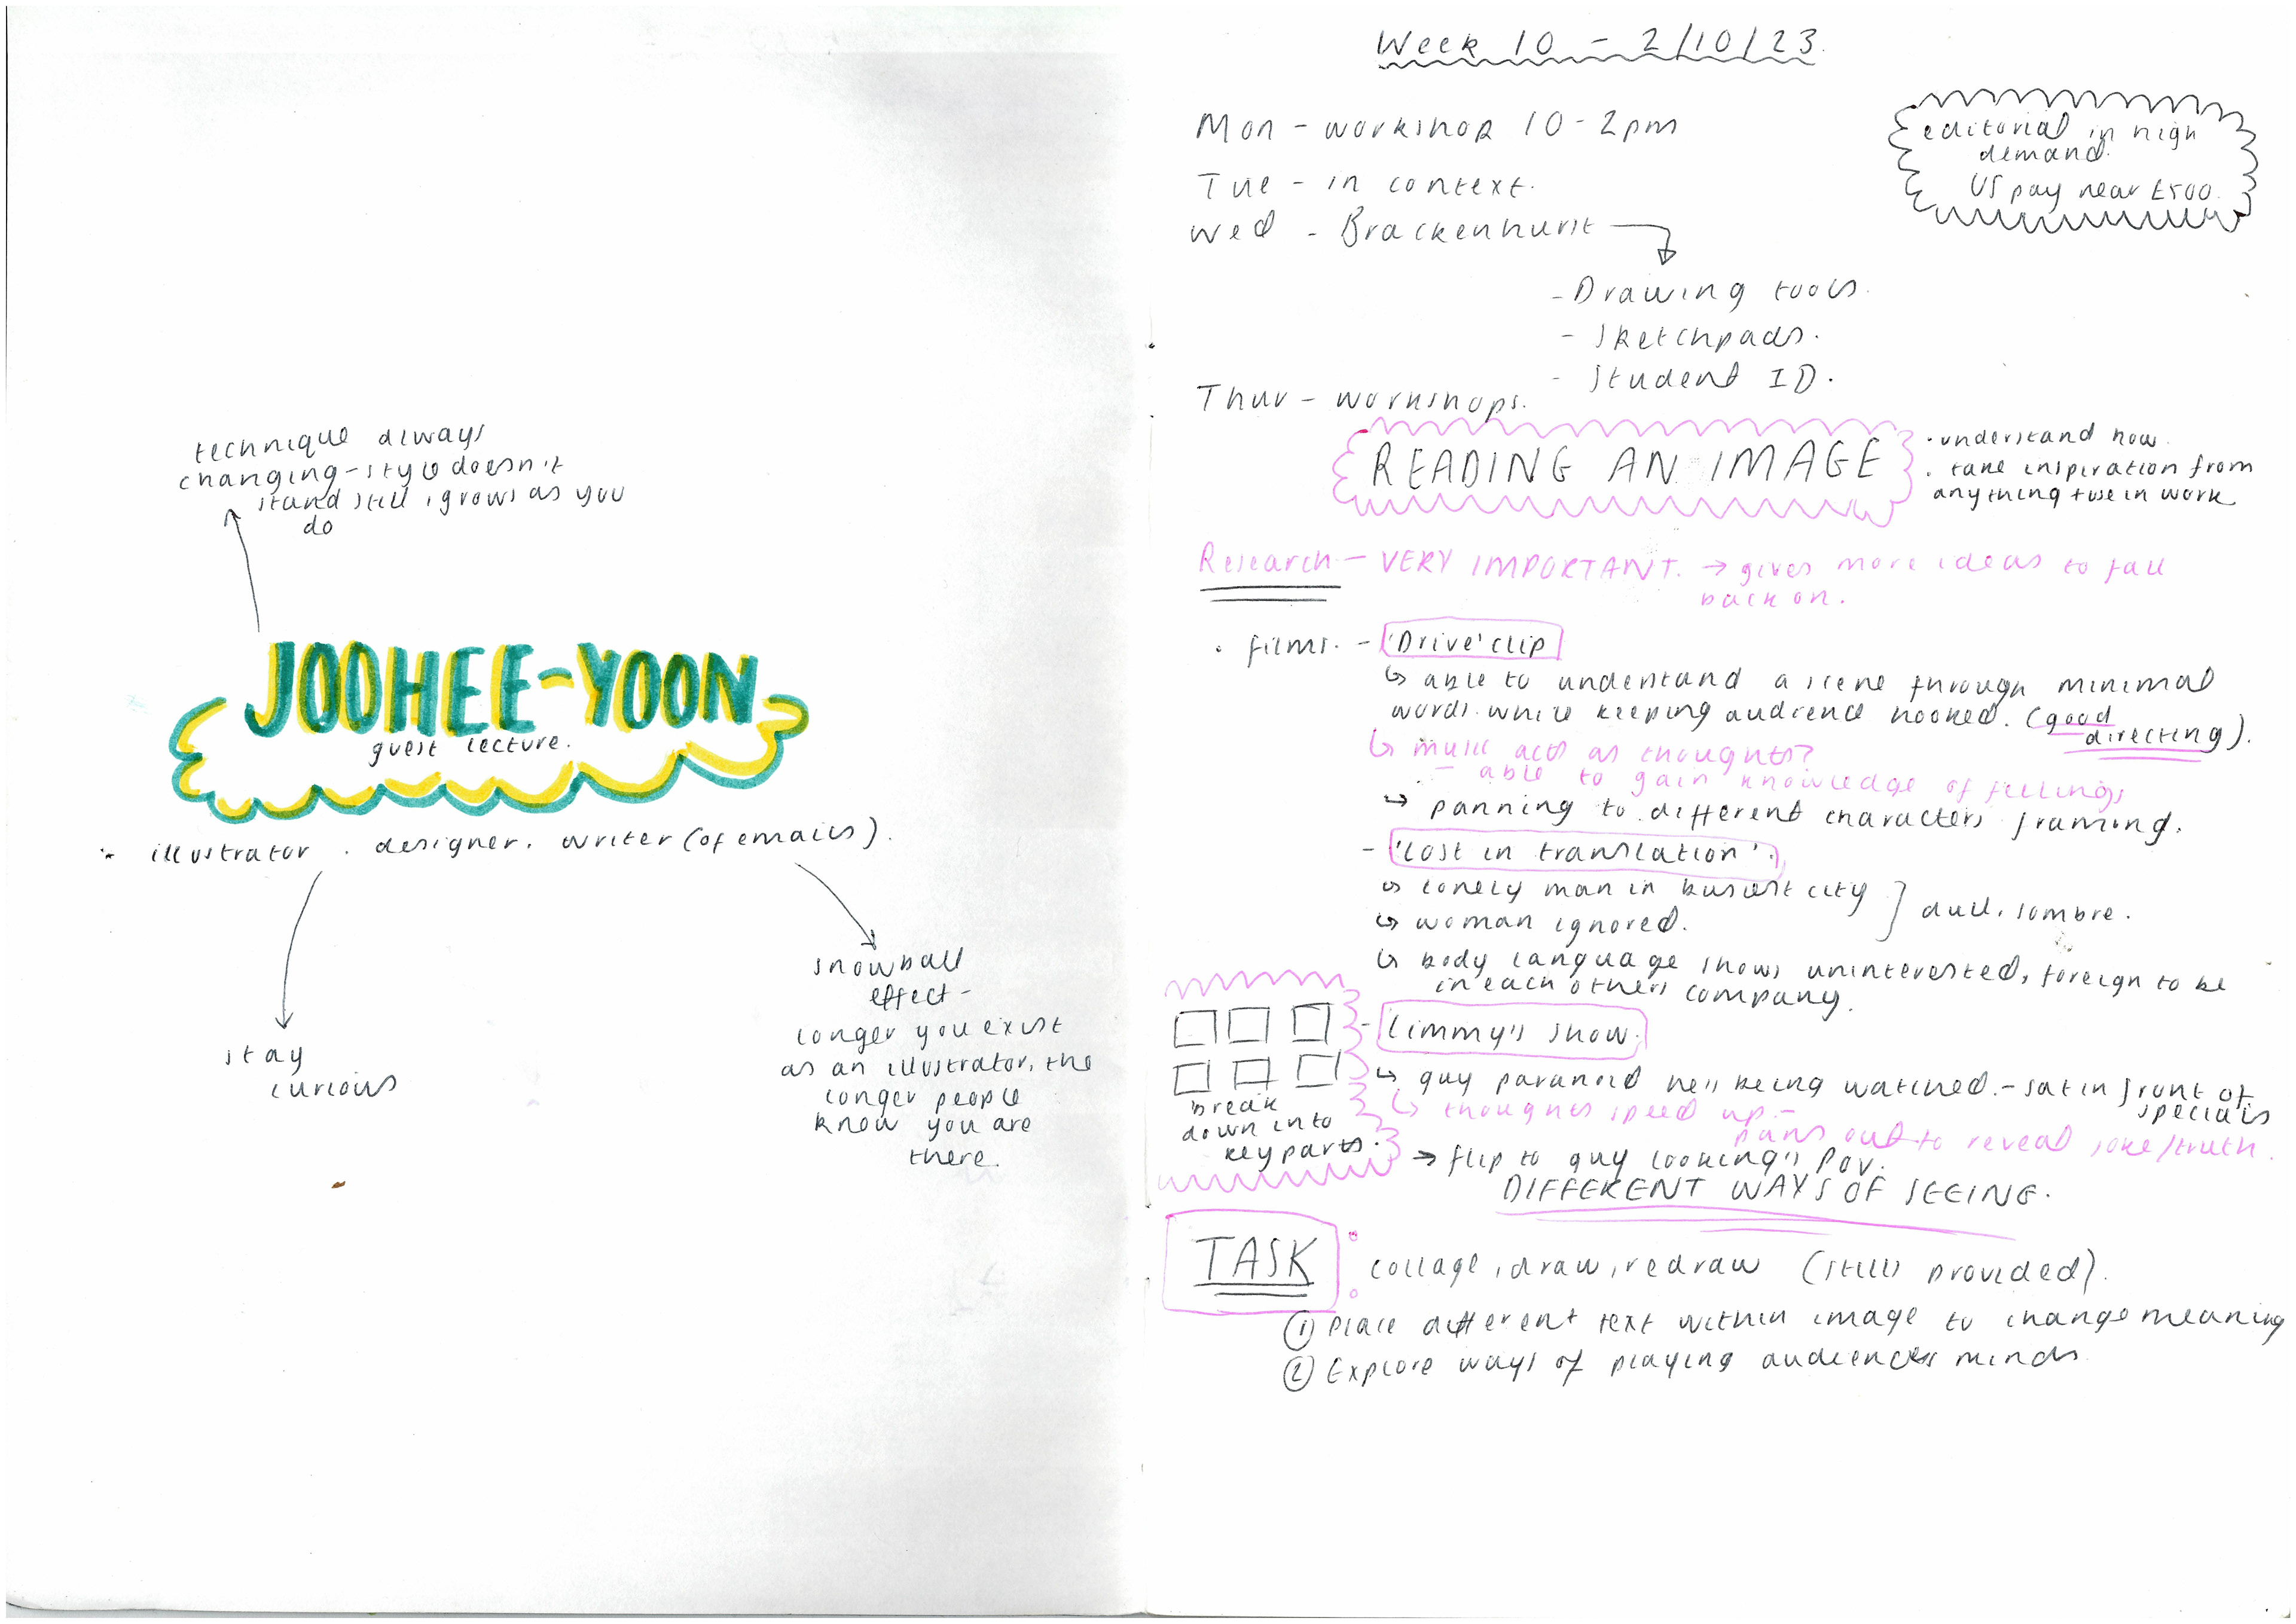 technique always
changing - style doesn't
stand still, grows as you
do
JOOHEE-YOON
guest lecture.
illustrator. designer. writer (of emails).
stay
curious
snowball
effect -
longer you exist
as an illustrator, the
longer people
know you are
there.
Week 10 - 2/10/23.
Mon - workshop 10-2pm
Tue - in context.
Wed - Brackenhurst
- Drawing tools.
- Sketchpads.
- Student ID.
Thur - workshops.
editorial in high
demand.
US pay near £500.
READING AN IMAGE
· understand how.
· take inspiration from
anything + use in work
Research - VERY IMPORTANT. → gives more ideas to fall
back on.
· films. - 'Drive' clip
↳ able to understand a scene through minimal
words. while keeping audience hooked. (good
directing).
↳ music acts as thoughts?
- able to gain knowledge of feelings
↳ panning to different characters framing.
- 'Lost in translation'.
↳ lonely man in busiest city
↳ woman ignored.
dull, sombre.
↳ body language shows uninterested, foreign to be
in each others company.
- Limmy's show.
↳ guy paranoid he's being watched. - sat in front of
specials
↳ thoughts speed up. -
pans out to reveal joke/truth.
→ flip to guy looking's pov.
DIFFERENT WAYS OF SEEING.
break
down into
key parts.
TASK: collage, draw, redraw (stills provided).
① Place different text within image to change meaning
② Explore ways of playing audiences minds